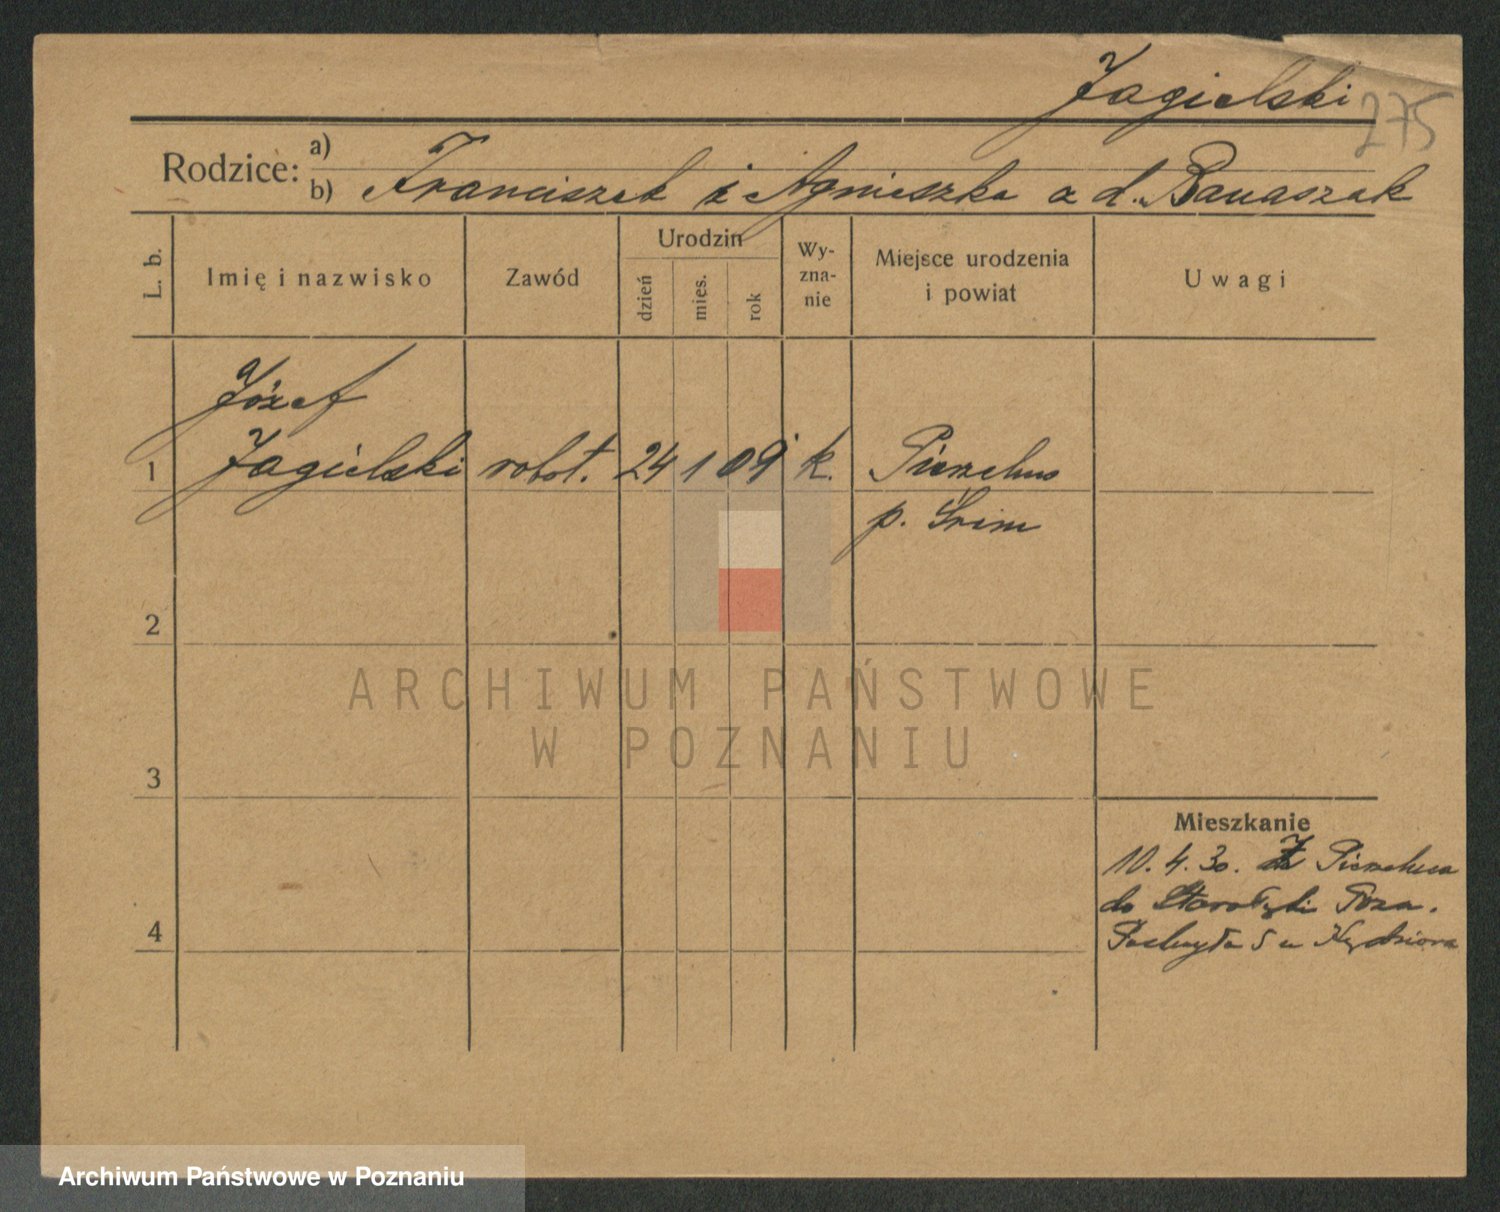 Jagielski
275
Rodzice: a)
b) Franciszek i Agnieszka z d. Banaszak
L. b.
Imię i nazwisko
Zawód
Urodzin
dzień
mies.
rok
Wy-
zna-
nie
Miejsce urodzenia
i powiat
Uwagi
Józef
1 Jagielski robot. 24 1 09 k.
p. Śrem
2
3
4
Mieszkanie
10. 4. 30. Z
do Starołęki Pozn.
5 u
ARCHIWUM PAŃSTWOWE
W POZNANIU
Archiwum Państwowe w Poznaniu